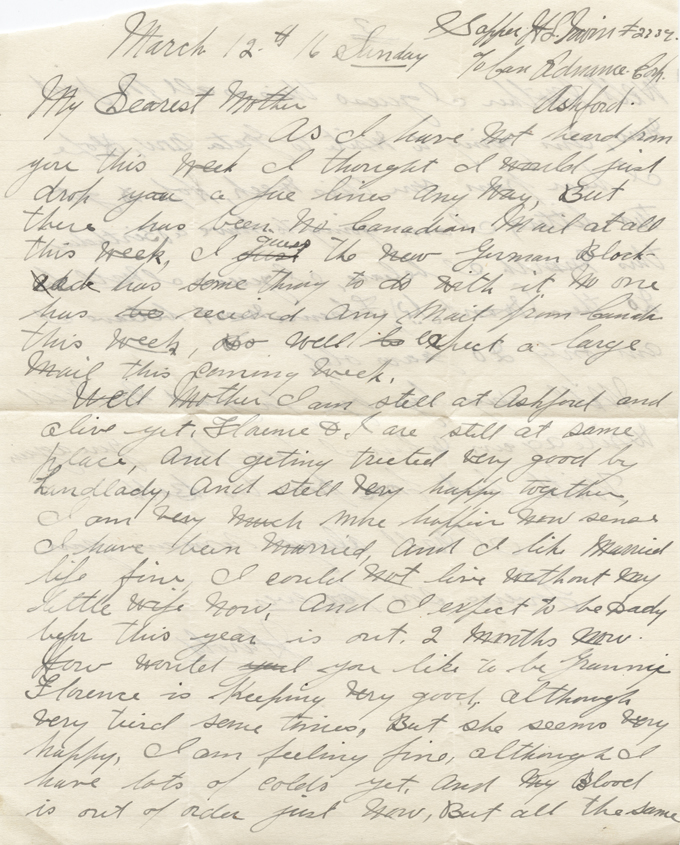 March 12th 16 Sunday
Sapper H L Irwin #2234.
To Can Advance
Ashford.
My Dearest Mother
As I have not heard from
you this week I thought I would just
drop you a few lines any way, But
there has been no Canadian Mail at all
this week, I guess the new German Block
has some thing to do with it no one
has received any mail from
this week, so well expect a large
Mail this coming week.
Well Mother I am still at Ashford and
alive yet, Florence & I are still at same
place, And geting treeted very good by
Landlady, And still very happy together,
I am very much more happier now sense
I have been Married, And I like Married
life fine, I could not live without my
little wife now, And I expect to be Dady
befor this year is out. 2 months now.
How you like to be Grannie
Florence is keeping very good, although
very tird some times, But she seems very
happy, I am feeling fine, although I
have lots of colds yet, And My Blood
is out of order just now, But all the same